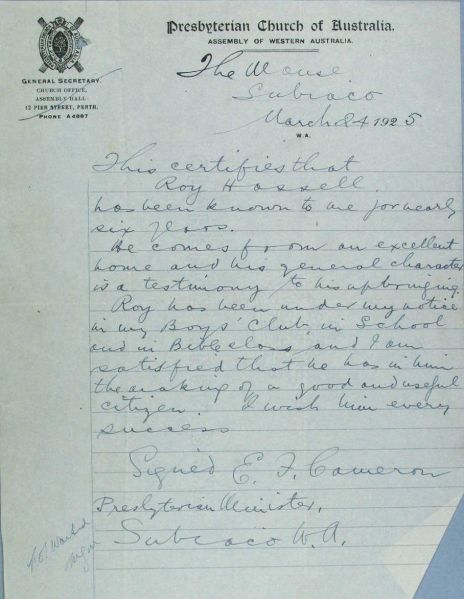 Presbyterian Church of Australia.
ASSEMBLY OF WESTERN AUSTRALIA.
GENERAL SECRETARY
CHURCH OFFICE,
ASSEMBLY HALL
12 PIER STREET, PERTH.
PHONE A4897
The Manse
Subiaco
March 24 1925
W.A.
This certifies that
Roy Hassell
has been known to me for nearly
six years.
He comes from an excellent
home and his general character
is a testimony to his upbringing.
Roy has been under my notice
in my Boys' Club, in School
and in Bible class and I am
satisfied that he has in him
the making of a good and useful
citizen. I wish him every
success
Signed E. F. Cameron
Presbyterian Minister,
Subiaco W.A.